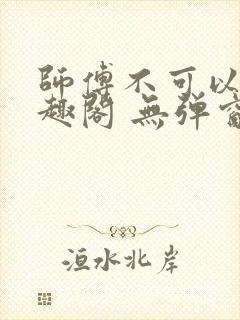 師傅不可以
趣閣 無弹
洹水北岸